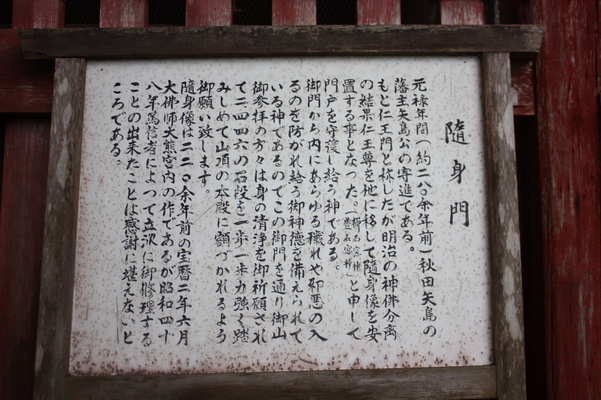 隨身門
元禄年間(約二八〇余年前)秋田矢島の
藩主矢島公の寄進である。
もと仁王門と称したが明治の神佛分離
の結果仁王尊を他に移して隨身像を安
置する事となった。櫛石窓神 豊石窓神 と申して
門戸を守護し給う神である。
御門から内にあらゆる穢れや邪悪の入
るのを防がれ給う御神徳を備えられて
いる神であるのでこの御門を通り御山
御参拝の方々は身の清浄を御祈願され
て二四四六の石段を一歩一歩力強く踏
みしめて山頂の本殿に額づかれるよう
御願い致します。
隨身像は二二〇余年前の宝暦二年六月
大佛師大熊宮内の作であるが昭和四十
八年篤信者によって立派に御修理する
ことの出来たことは感謝に堪えないと
ころである。